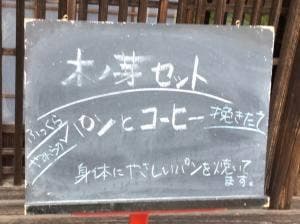 木ノ芽セット
ふっくら
やわらか
パンとコーヒー
挽きたて
身体にやさしいパンを焼いて
ます。